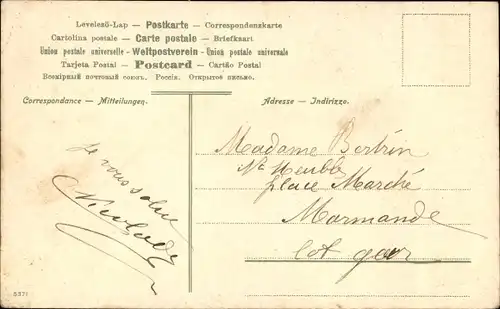 Levelező-Lap — Postkarte — Correspondenzkarte
Cartolina postale — Carte postale — Briefkaart
Union postale universelle — Weltpostverein — Union postale universale
Tarjeta Postal — Postcard — Cartão Postal
Всемірный почтовый союзъ. Россія. Открытое письмо.
Correspondance — Mitteilungen.
Adresse — Indirizzo.
Je vous salue
Madame Bertrin
Place Marché
Marmande
Lot
5371